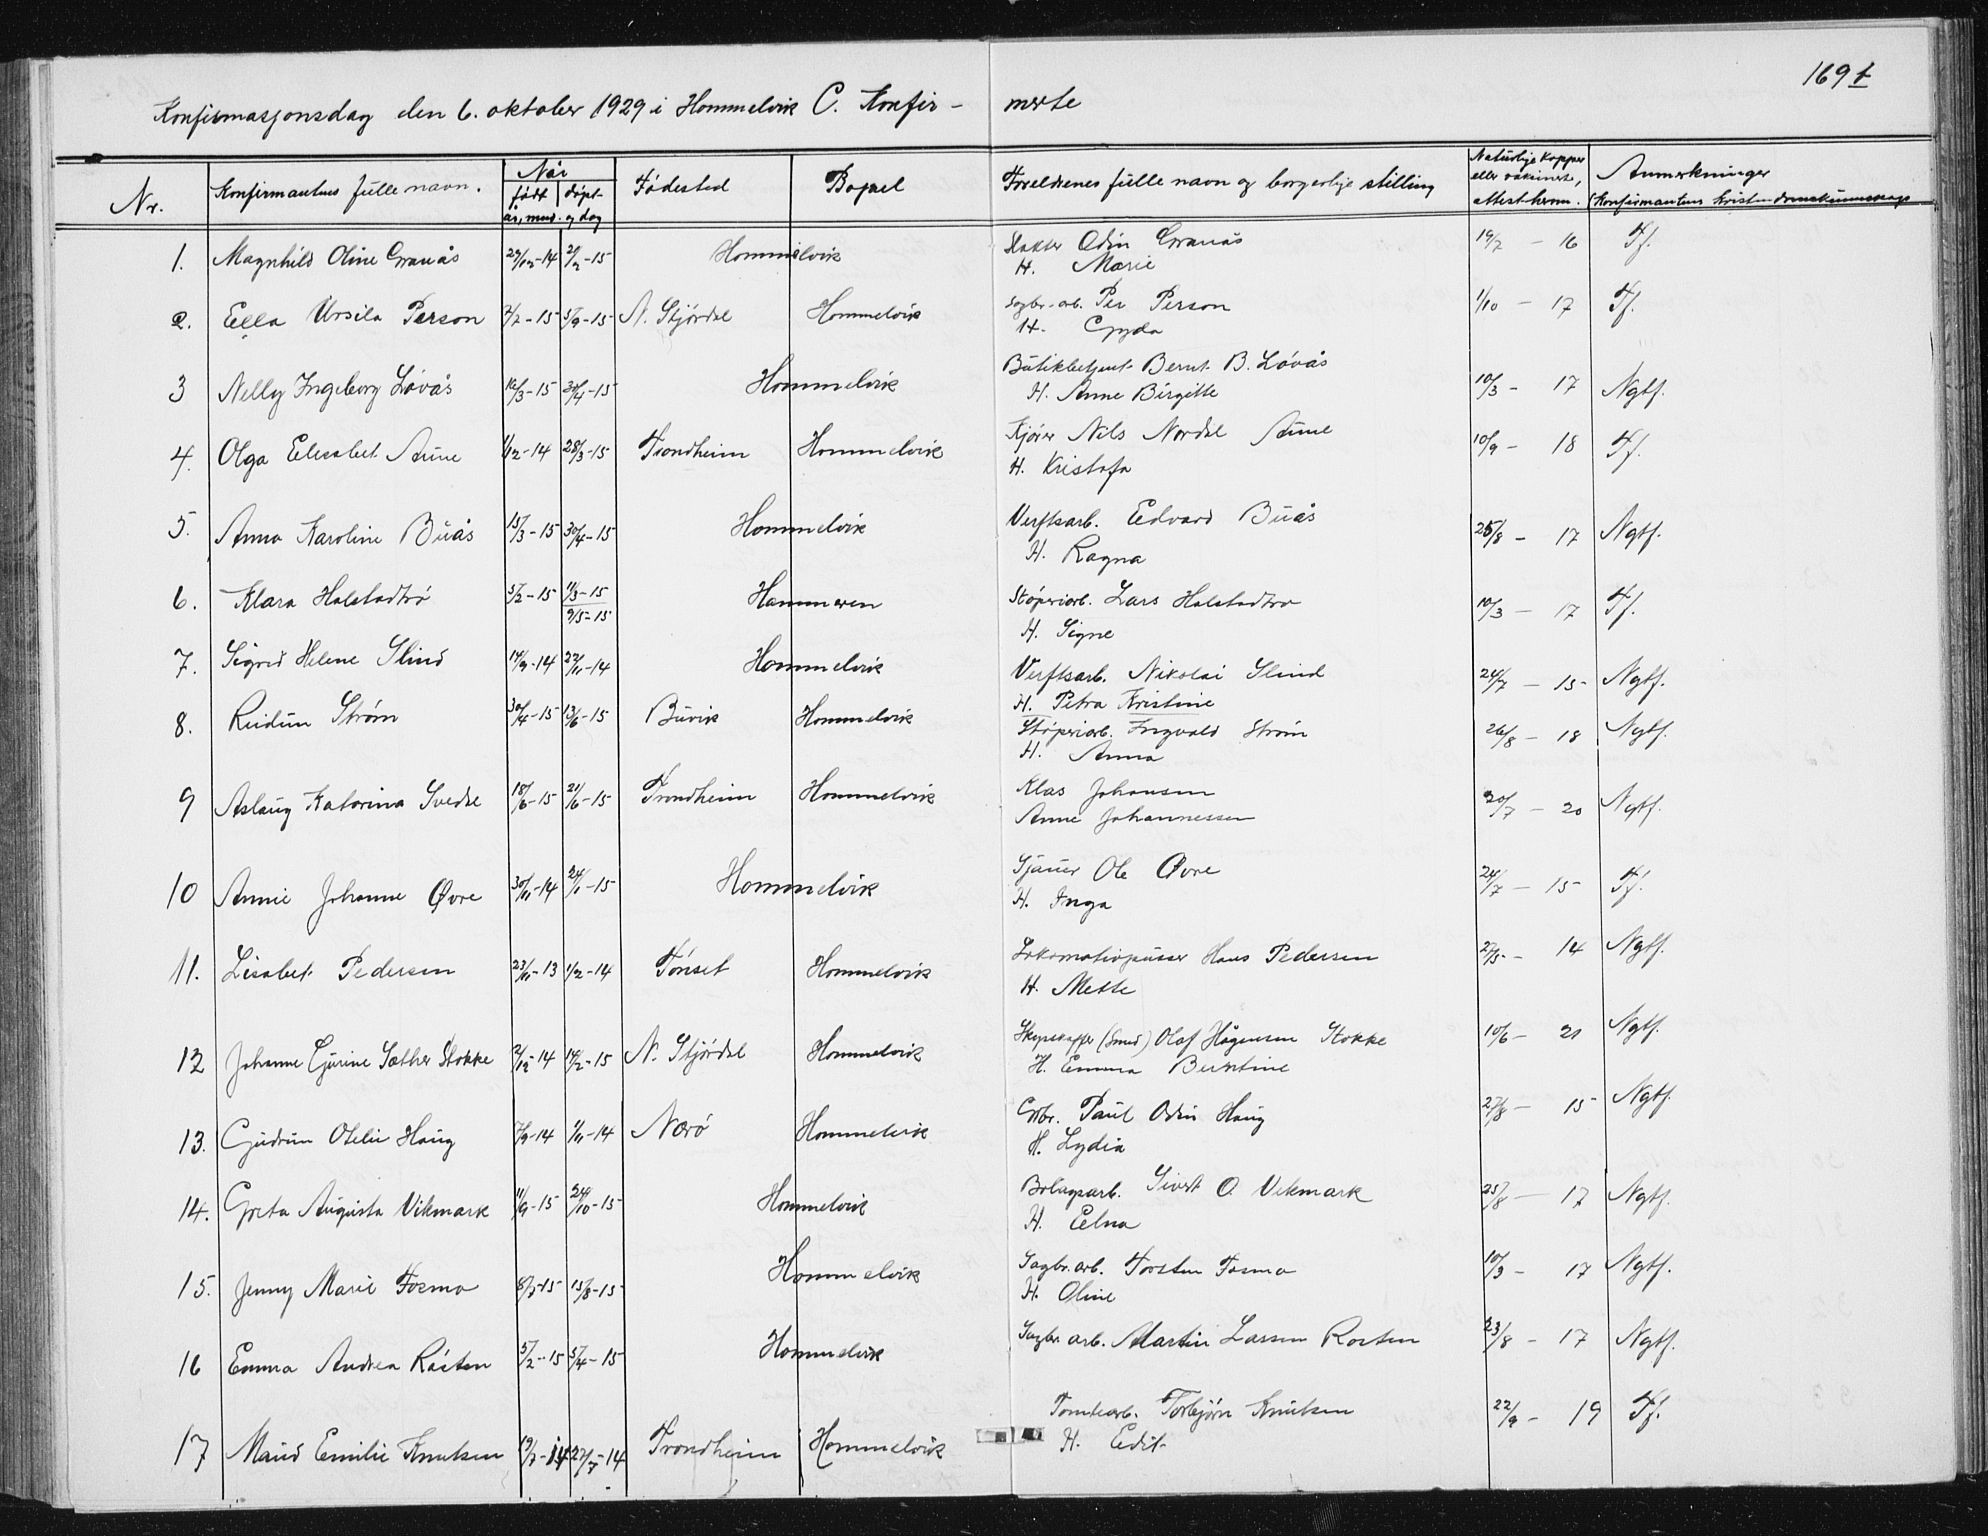 169 f
Konfirmasjonsdag den 6. oktober 1929 i Hommelvik C. Konfir- merte
Nr. Konfirmantens fulle navn. Når født døpt år, mnd. og dag Fødested Bopæl Foreldrenes fulle navn og borgerlige stilling Naturlige kopper eller vaksinert, attest herom. Anmerkninger (Konfirmantens kristendomskunnskap
1. Magnhild Oline Granås 29/12-14 21/2-15 Hommelvik Slakter Odin Granås 19/7 - 16 Tf.
H. Marie
2. Ella Ursila Person 7/7-15 5/9-15 N. Stjørdal Hommelvik Sagbr.-arb. Per Person 1/10 - 17 Tf.
H. Gyda
3 Nelly Ingeborg Løvås 16/3-15 30/4-15 Hommelvik Butikbetjent Bernt B. Løvås 10/3 - 17 Ngtf.
H. Anne Birgitte
4. Olga Elisabet Aune 1/12-14 28/3-15 Trondheim Hommelvik Kjører Nils Nordal Aune 10/9 - 18 Tf.
H. Kristofa
5. Anna Karoline Buås 15/3-15 30/4-15 Hommelvik Verftsarb. Edvard Buås 25/8 - 17 Ngtf.
H. Ragna
6. Klara Halstadtrø 5/2-15 11/3-15 Hammeren Støperiarb. Lars Halstadtrø 10/3 - 17 Tf.
9/5-15 H. Signe
7. Sigrid Helene Slind 14/9-14 22/11-14 Hommelvik Verftsarb. Nikolai Slind 24/7 - 15 Ngtf.
H. Petra Kristine
8. Reidun Strøm 30/4-15 13/6-15 Buvik Hommelvik Støperiarb. Ingvald Strøm 26/8 - 18 Ngtf.
H. Anna
9 Aslaug Katarina Svedal 18/6-15 21/6-15 Trondheim Hommelvik Klas Johansen 20/7 - 20 Ngtf.
Anne Johannessen
10 Annie Johanne Øvre 30/11-14 24/1-15 Hommelvik Sjauer Ole Øvre 24/7 - 15 Tf.
H. Inga
11. Lisabet Pedersen 23/11-13 1/2-14 Tønset Hommelvik Lokomotivpusser Hans Pedersen 27/5 - 14 Ngtf.
H. Mette
12 Johanne Gjurine Sæther Stokke 2/12-14 14/2-15 N. Stjørdal Hommelvik (Smed) Olaf Hågensen Stokke 10/6 - 21 Ngtf.
H. Emma Berntine
13. Gudrun Otelie Haug 7/9-14 1/11-14 Nærø Hommelvik Grbr. Paul Odin Haug 27/8 - 15 Ngtf.
H. Lydia
14. Greta Augusta Vikmark 11/9-15 24/10-15 Hommelvik Bolagsarb. Sivert O. Vikmark 25/8 - 17 Ngtf.
H. Elna
15. Jenny Marie Fosmo 8/7-15 15/8-15 Hommelvik Sagbr.arb. Torsten Fosmo 10/3 - 17 Ngtf.
H. Oline
16 Emma Andrea Råsten 5/2-15 5/4-15 Hommelvik Sagbr.arb. Martin Larsen Rosten 23/8 - 17 Ngtf.
17 Maud Emilie Knutsen 19/7-14 27/7-14 Trondheim Hommelvik Tomtearb. Torbjørn Knutsen 22/9 - 19 Tf.
H. Edit